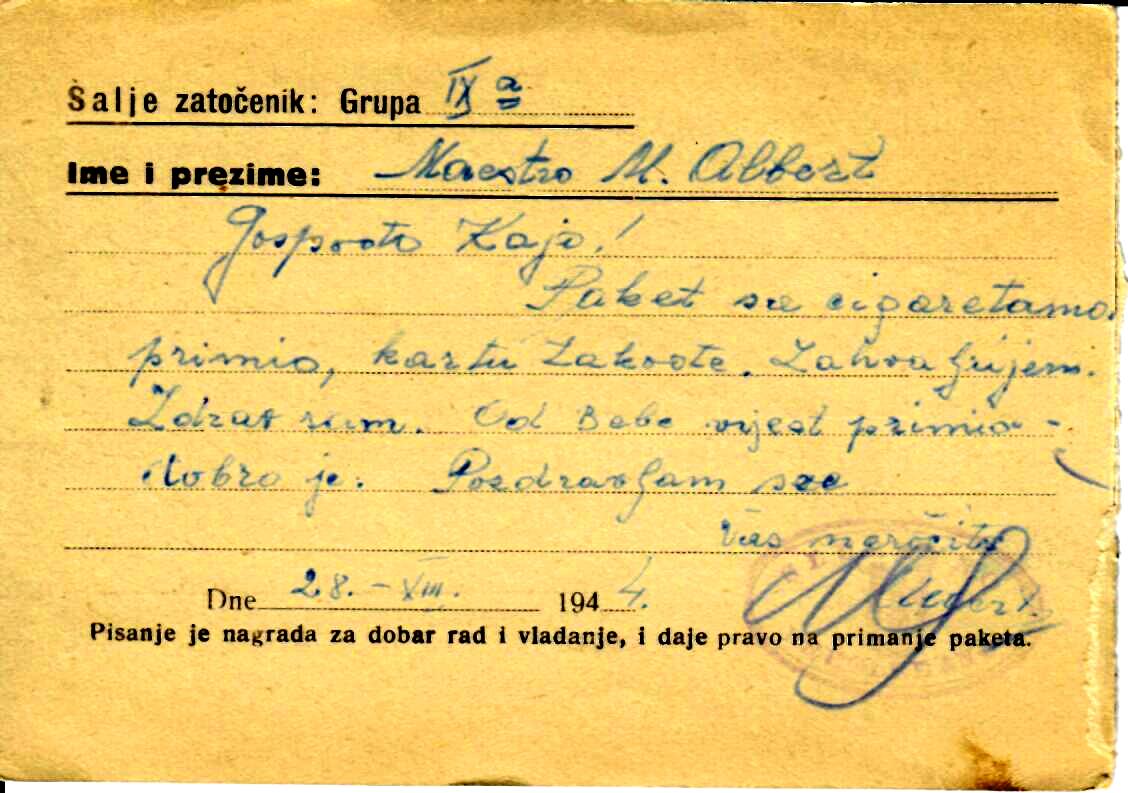 Šalje zatočenik: Grupa IX a
Ime i prezime: Maestro M. Albert
Gospođo Kajo!
Paket sa cigaretama
primio, kartu takođe. Zahvaljujem.
Zdrav sam. Od Bebe vijest primio -
dobro je. Pozdravljam sve
Vas naročito
Dne 28. - VIII. 1944.
Pisanje je nagrada za dobar rad i vladanje, i daje pravo na primanje paketa.